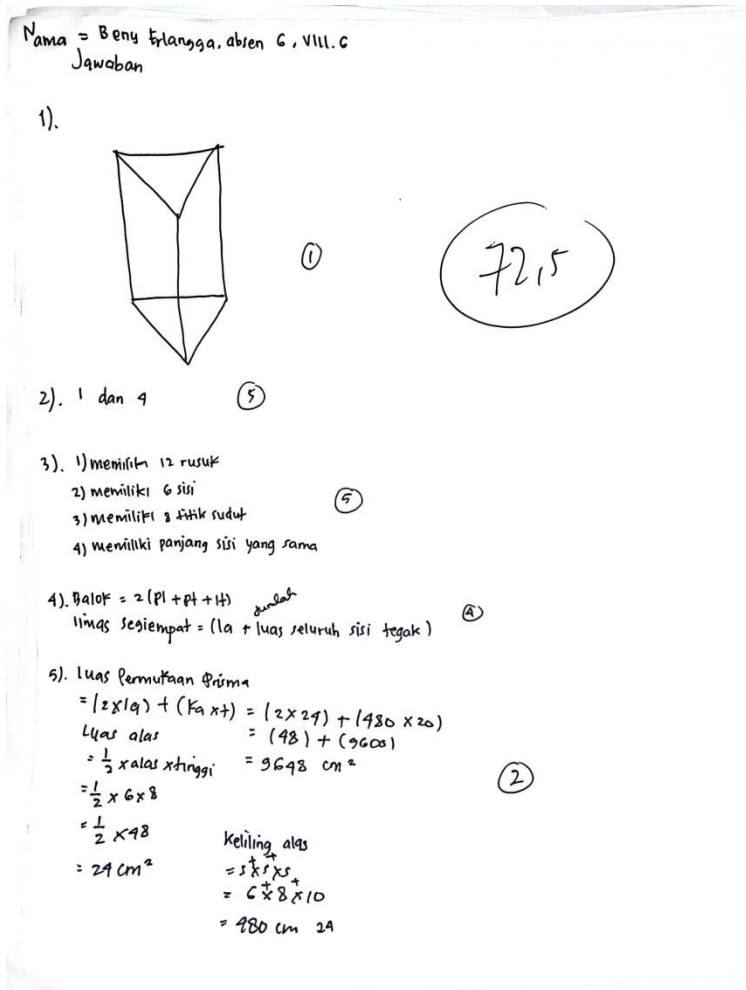 Nama = Beny Erlangga, absen 6, VIII.6
Jawaban
1).
①
72,5
2). 1 dan 4
⑤
3). 1) memiliki 12 rusuk
2) memiliki 6 sisi
3) memiliki 8 titik sudut
4) memiliki panjang sisi yang sama
⑤
4). Balok = 2(pl + pt + lt)
jumlah
limas segiempat = (la + luas seluruh sisi tegak)
④
5). luas Permukaan Prisma
= (2×la) + (Ka×t) = (2×24) + (480 × 20)
Luas alas = (48) + (9600)
= 1/2 × alas × tinggi = 9648 cm²
②
= 1/2 × 6 × 8
= 1/2 × 48
= 24 cm²
Keliling alas
= s × s × s
+ +
= 6 × 8 × 10
+ +
= 480 cm 24